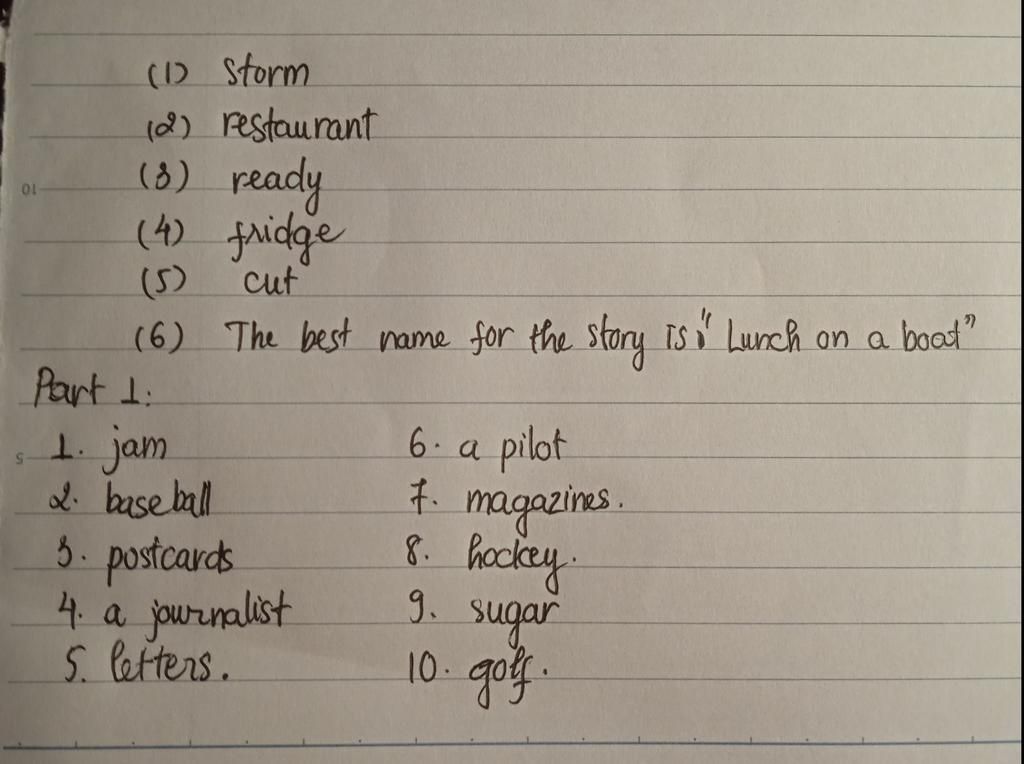 (1) storm
(2) restaurant
(3) ready
(4) fridge
(5) cut
(6) The best name for the story is "Lunch on a boat"
Part 1:
1. jam 6. a pilot
2. baseball 7. magazines.
3. postcards 8. hockey.
4. a journalist 9. sugar
5. letters. 10. golf.